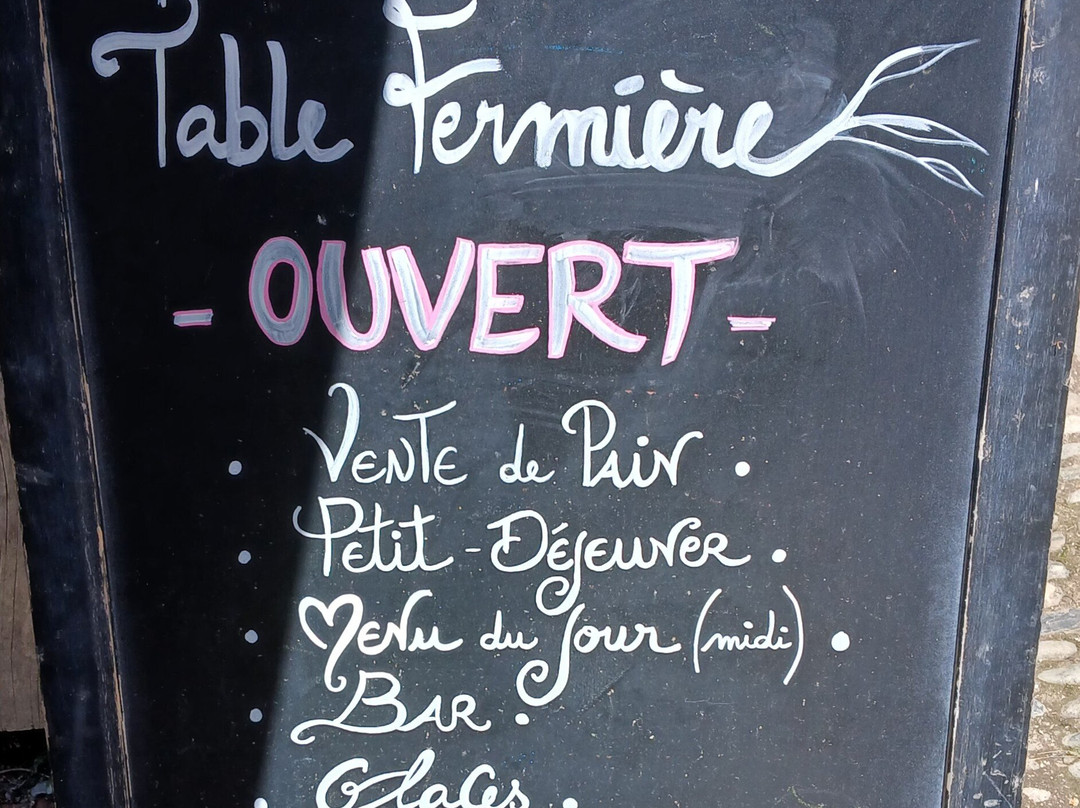 Table Fermière
- OUVERT -
• VENTE de PAIN •
• Petit-Déjeuner •
• Menu du Jour (midi) •
• BAR •
• Glaces •